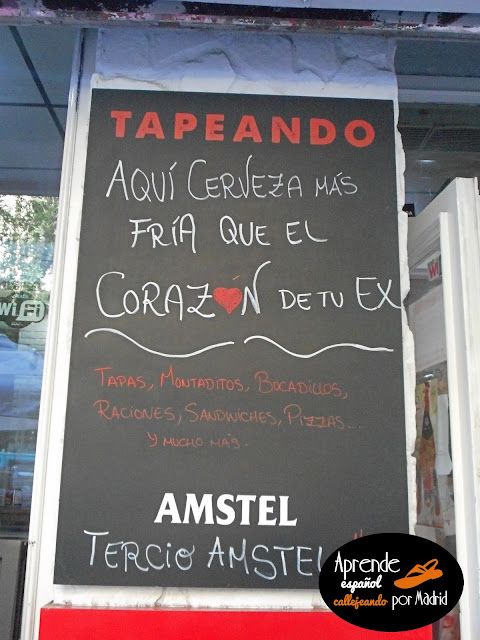 TAPEANDO
AQUÍ CERVEZA MÁS
FRÍA QUE EL
CORAZÓN DE TU EX
TAPAS, MONTADITOS, BOCADILLOS,
RACIONES, SANDWICHES, PIZZAS...
Y MUCHO MÁS.
AMSTEL
TERCIO AMSTEL
WiFi
Aprende
español
callejeando por Madrid